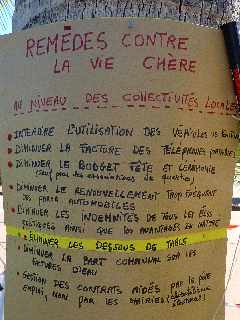 REMÈDES CONTRE
LA VIE CHÈRE
AU NIVEAU DES COLLECTIVITÉS LOCALES
• INTERDIRE L'UTILISATION DES VÉHICULES DE
• DIMINUER LA FACTURE DES TÉLÉPHONES
• DIMINUER LE BUDGET FÊTE ET CÉRÉMONIE
(Sauf pour les associations de quartier)
• DIMINUER LE RENOUVELLEMENT TROP FRÉQUENT
DES PARCS AUTOMOBILES
• DIMINUER LES INDEMNITÉS DE TOUS LES ÉLUS
AINSI QUE LES AVANTAGES EN NATURE
• ÉLIMINER LES DESSOUS DE TABLE
• DIMINUER LA PART COMMUNAL SUR LES
FACTURES D'EAU
• GESTION DES CONTRATS AIDÉS PAR LE PÔLE
EMPLOI NON PAR LES MAIRIES